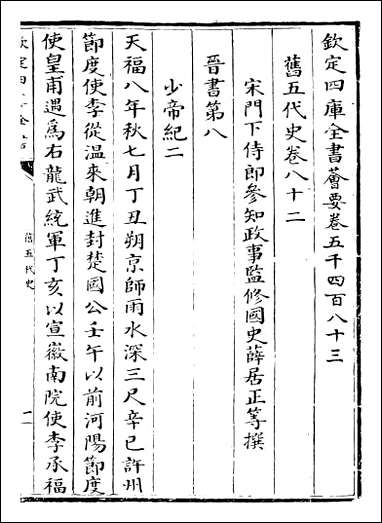 欽定四庫全書薈要卷五千四百八十三
舊五代史卷八十二
宋門下侍郎參知政事監修國史薛居正等撰
晉書第八
少帝紀二
天福八年秋七月丁丑朔京師雨水深三尺辛巳許州
節度使李從溫來朝進封楚國公壬午以前河陽節度
使皇甫遇為右龍武統軍丁亥以宣徽南院使李承福
欽定四庫全書
舊五代史